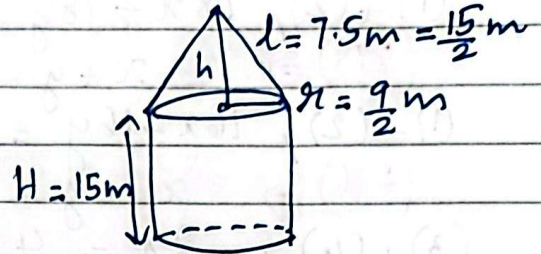 l = 7.5m = 15/2 m
h
r = 9/2 m
H = 15m